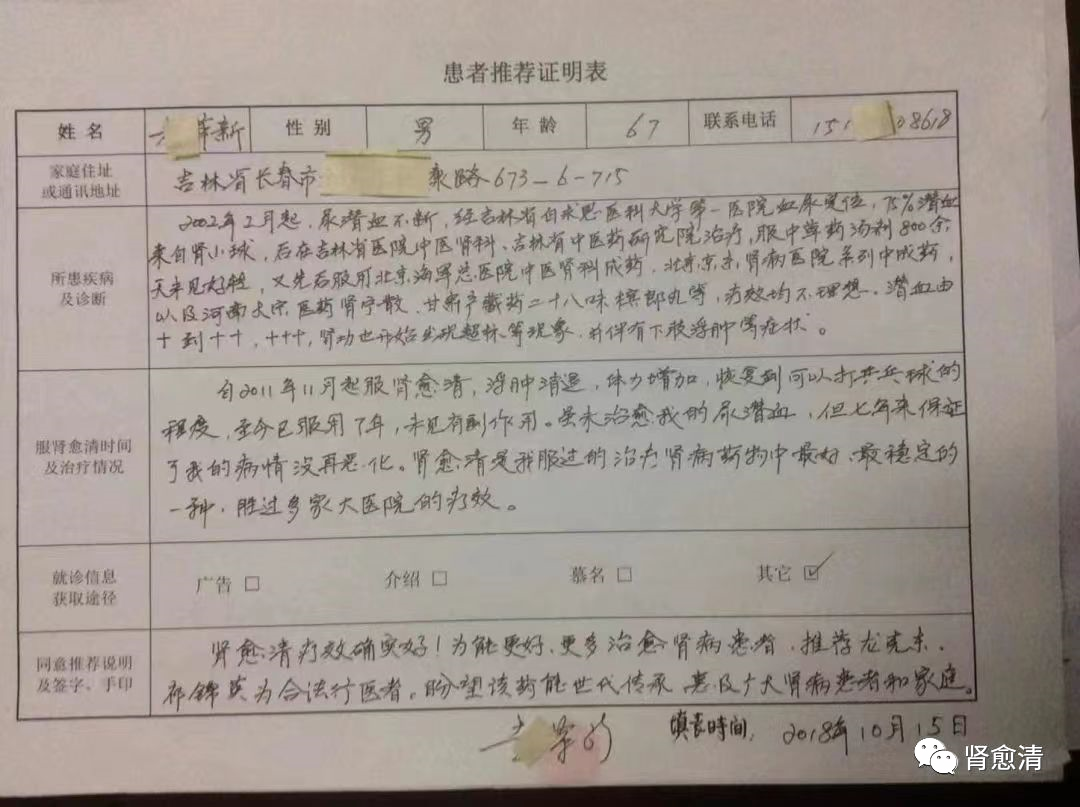 患者推荐证明表
姓 名 革新 性 别 男 年 龄 67 联系电话 151 08618
家庭住址
或通讯地址
吉林省长春市 乘路673-6-715
所患疾病
及诊断
2002年2月起，尿潜血不断，经吉林省白求恩医科大学第一医院血尿定位，75%潜血
来自肾小球，后在吉林省医院中医肾科，吉林省中医药研究院治疗，服中草药汤剂800余
天未见好转，又先后服用北京海军总医院中医肾科成药，北京京东肾病医院系列中成药，
以及河南大宗医药肾宁散、甘肃产藏药二十八味槟郎丸等，疗效均不理想。潜血由
+到++，+++，肾功也开始出现超标等现象，并伴有下肢浮肿等症状。
服肾愈清时间
及治疗情况
自2011年11月起服肾愈清，浮肿消退，体力增加，恢复到可以打乒乓球的
程度，至今已服用了7年，未见有副作用。虽未治愈我的尿潜血，但七年来保证
了我的病情没再恶化。肾愈清是我服过的治疗肾病药物中最好、最稳定的
一种，胜过多家大医院的疗效。
就诊信息
获取途径
广告 □ 介绍 □ 慕名 □ 其它 ☑
同意推荐说明
及签字、手印
肾愈清疗效确实好！为能更好、更多治愈肾病患者，推荐龙克东、
祁锦英为合法行医者。盼望该药能世代传承，惠及广大肾病患者和家庭。
填表时间：2018年10月15日
肾愈清